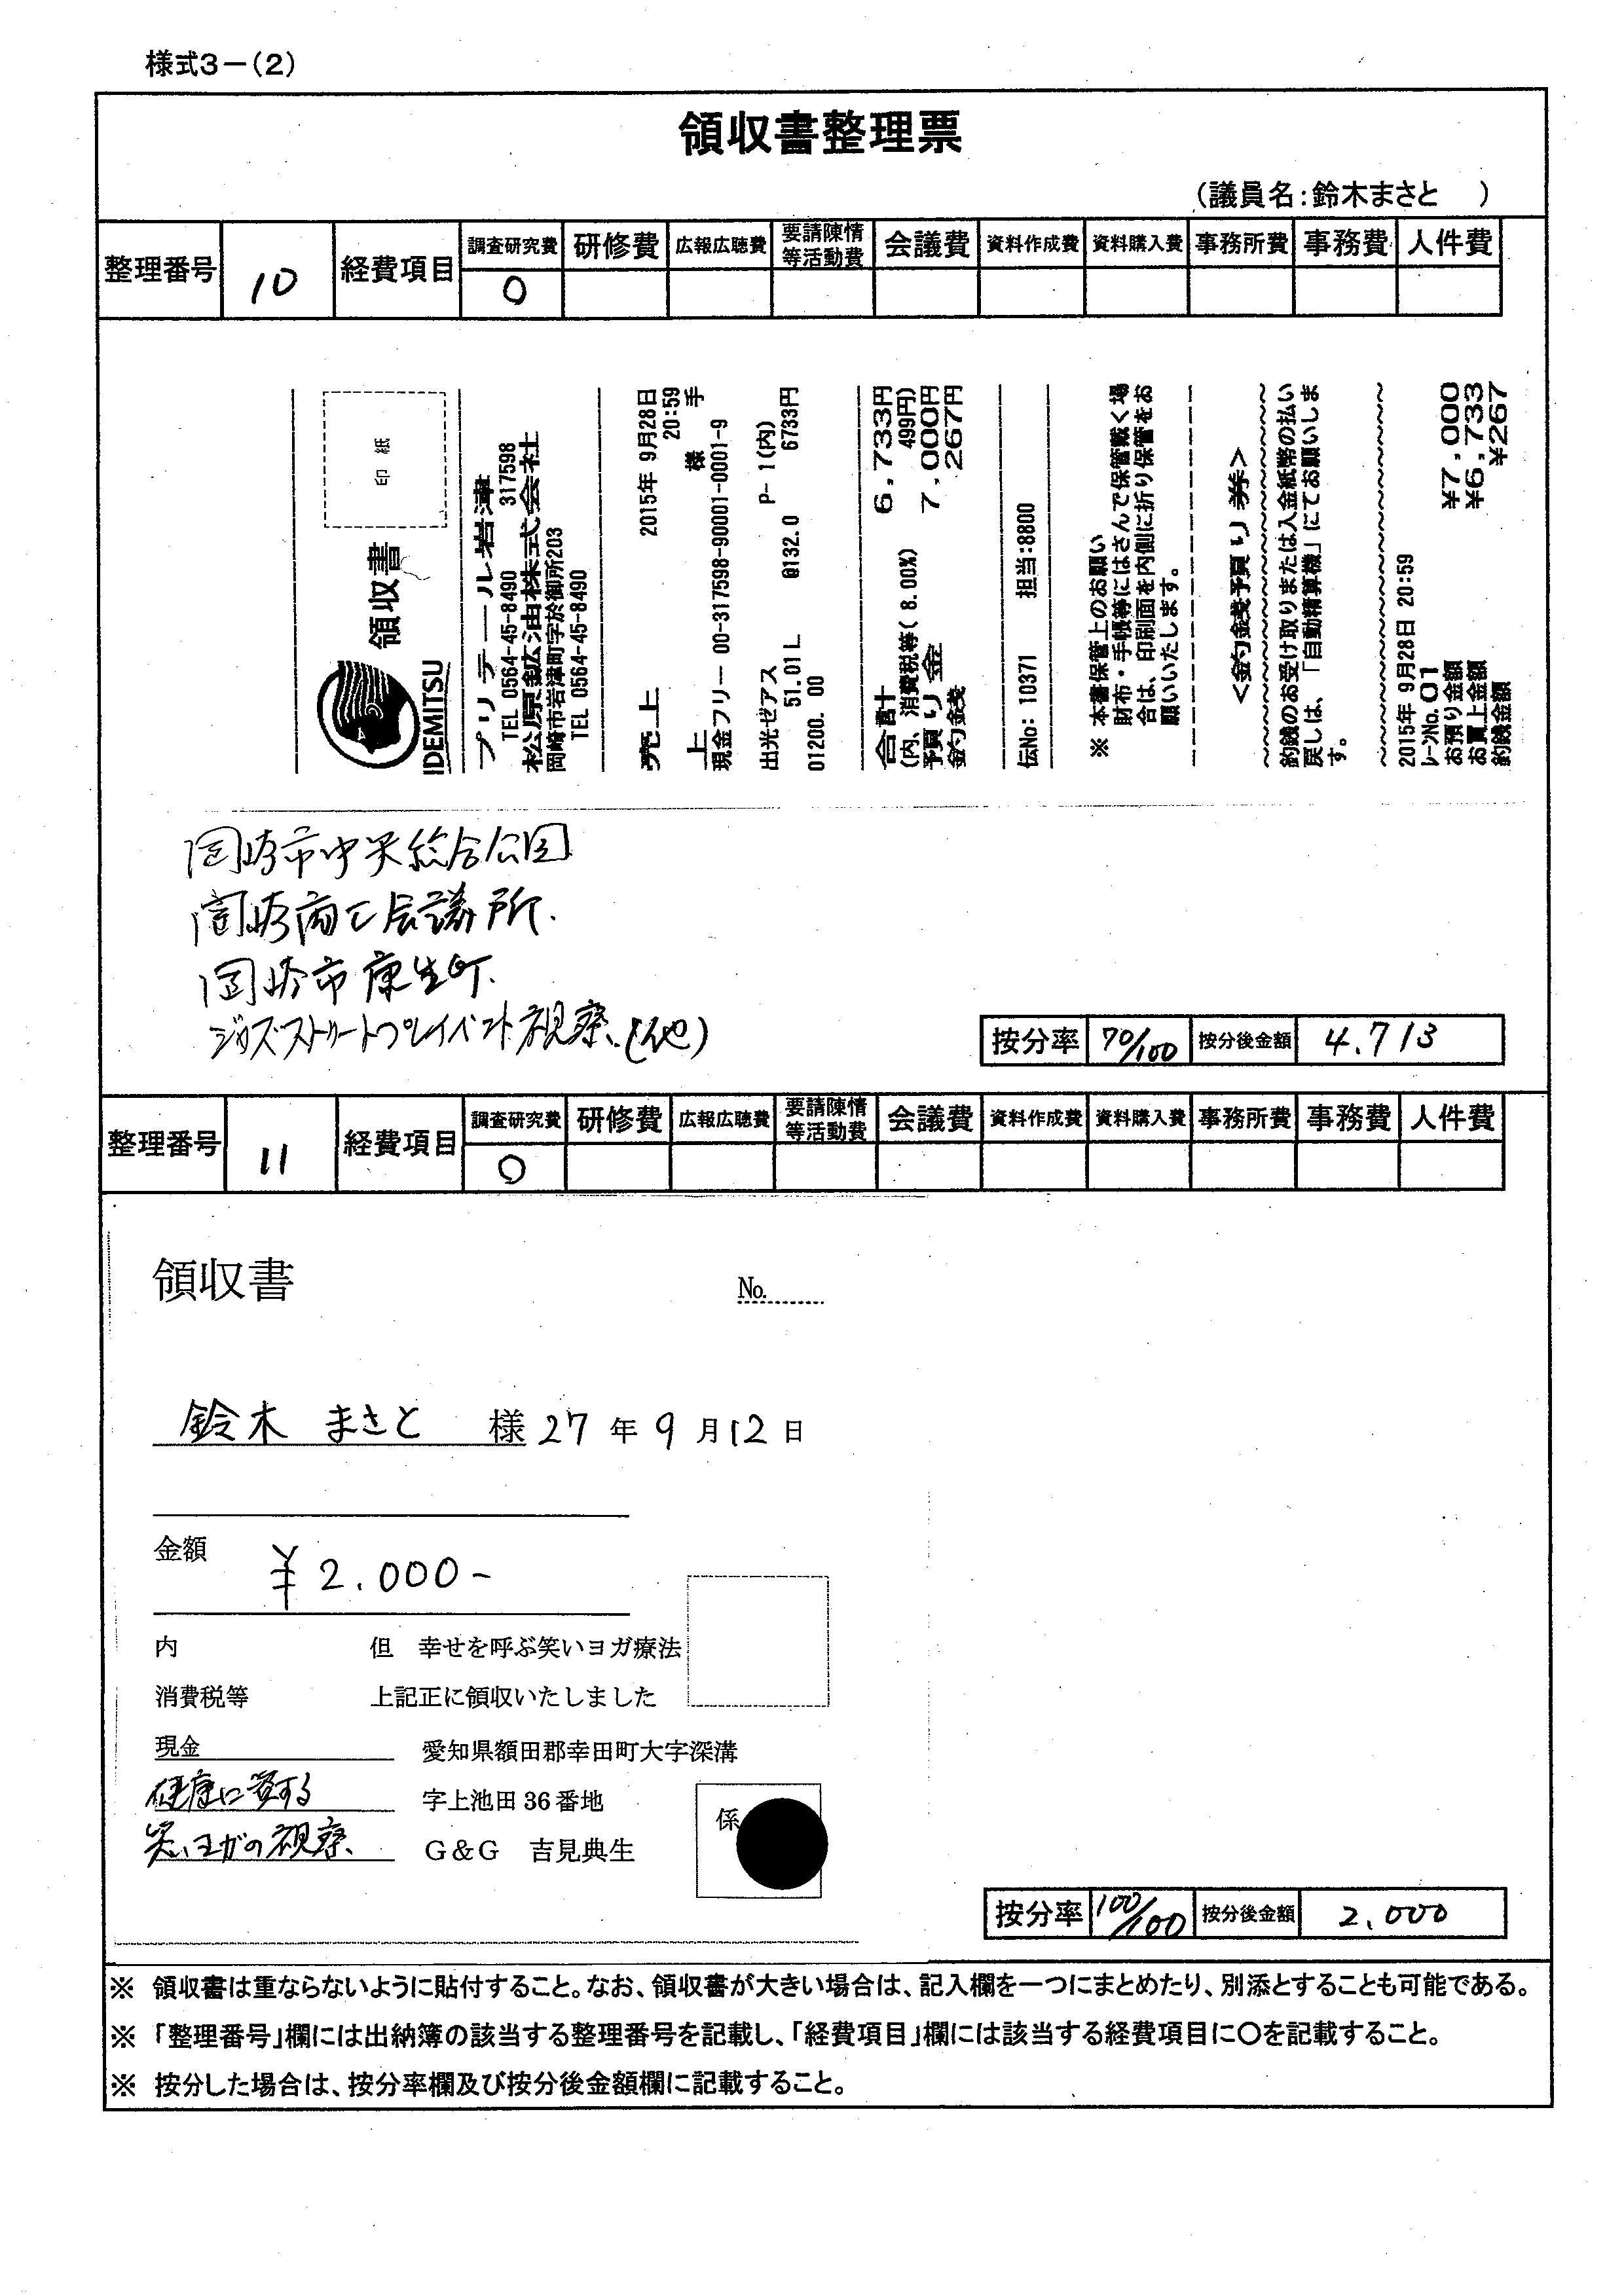 様式3－(2)
領収書整理票
(議員名：鈴木まさと　)
整理番号 10 経費項目 調査研究費 研修費 広報広聴費 要請陳情等活動費 会議費 資料作成費 資料購入費 事務所費 事務費 人件費
○
IDEMITSU
領収書
印紙
プリテール岩津
TEL 0564-45-8490 317598
松原鉱油株式会社
岡崎市岩津町字於御所203
TEL 0564-45-8490
売上 2015年 9月28日
20:59
上 様 手
現金フリー 00-317598-90001-0001-9
出光ゼアス P- 1(内)
51.01L @132.0 6733円
01200. 00
合計 6,733円
(内、消費税等( 8.00%) 499円)
預り金 7,000円
釣銭 267円
伝No: 10371 担当:8800
※ 本書保管上のお願い
財布・手帳等にはさんで保管戴く場
合は、印刷面を内側に折り保管をお
願いいたします。
<釣銭預り券>
釣銭のお受け取りまたは入金紙幣の払い
戻しは、「自動精算機」にてお願いしま
す。
2015年 9月28日 20:59
レーンNo.01
お預り金額 ¥7,000
お買上金額 ¥6,733
釣銭金額 ¥267
岡崎市中央総合公園
岡崎商工会議所.
岡崎市康生町.
ジャズストリートプレイベント視察.(他)
按分率 70/100 按分後金額 4.713
整理番号 11 経費項目 調査研究費 研修費 広報広聴費 要請陳情等活動費 会議費 資料作成費 資料購入費 事務所費 事務費 人件費
○
領収書 No.
鈴木 まさと 様 27年 9月12日
金額 ¥2.000-
内 但 幸せを呼ぶ笑いヨガ療法
消費税等 上記正に領収いたしました
現金 愛知県額田郡幸田町大字深溝
健康に資する 字上池田36番地
笑いヨガの視察、 G&G 吉見典生
係
按分率 100/100 按分後金額 2.000
※ 領収書は重ならないように貼付すること。なお、領収書が大きい場合は、記入欄を一つにまとめたり、別添とすることも可能である。
※ 「整理番号」欄には出納簿の該当する整理番号を記載し、「経費項目」欄には該当する経費項目に○を記載すること。
※ 按分した場合は、按分率欄及び按分後金額欄に記載すること。